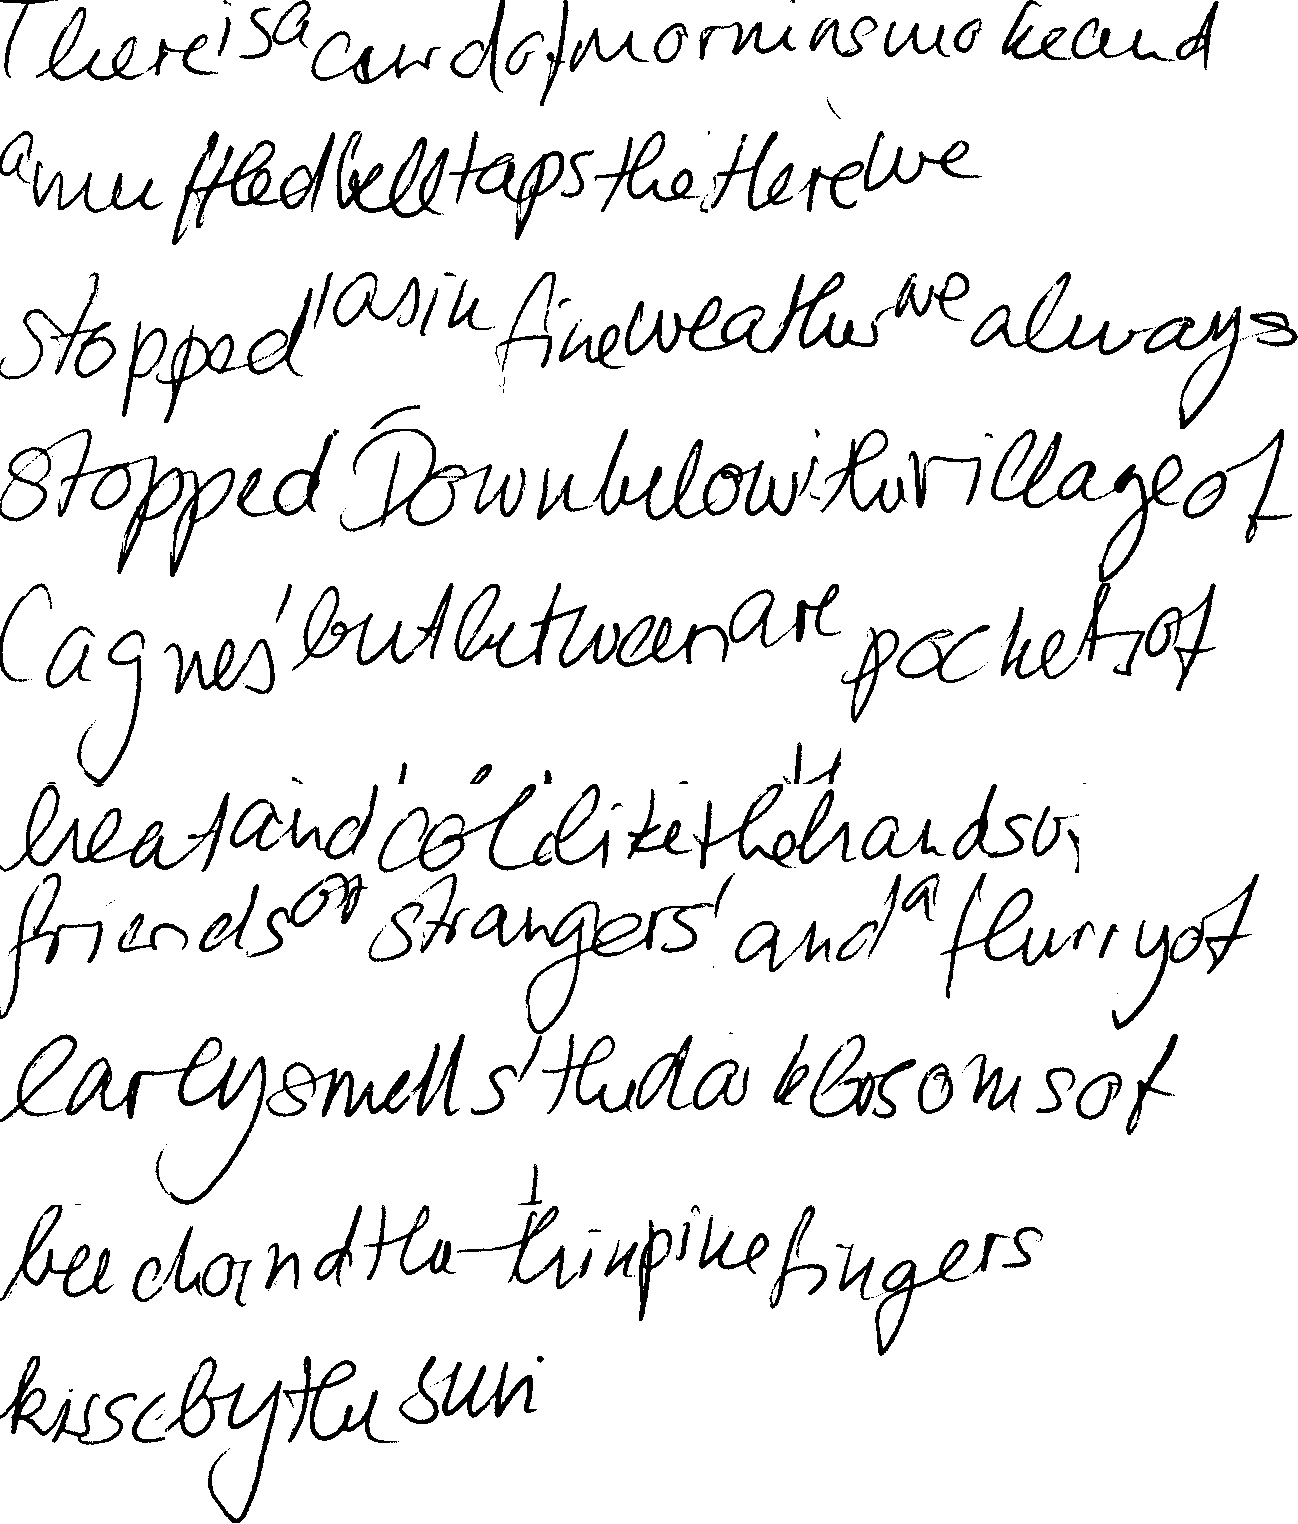 There is a curd of morning smoke and
a muffled bell taps the Here we
stopped, as in fine weather we always
stopped. Down below is the village of
Cagnes, but between are pockets of
heat and cold like the hands of
friends or strangers, and a flurry of
early smells, the dark blossoms of
beech and the thin pine fingers
kissed by the sun